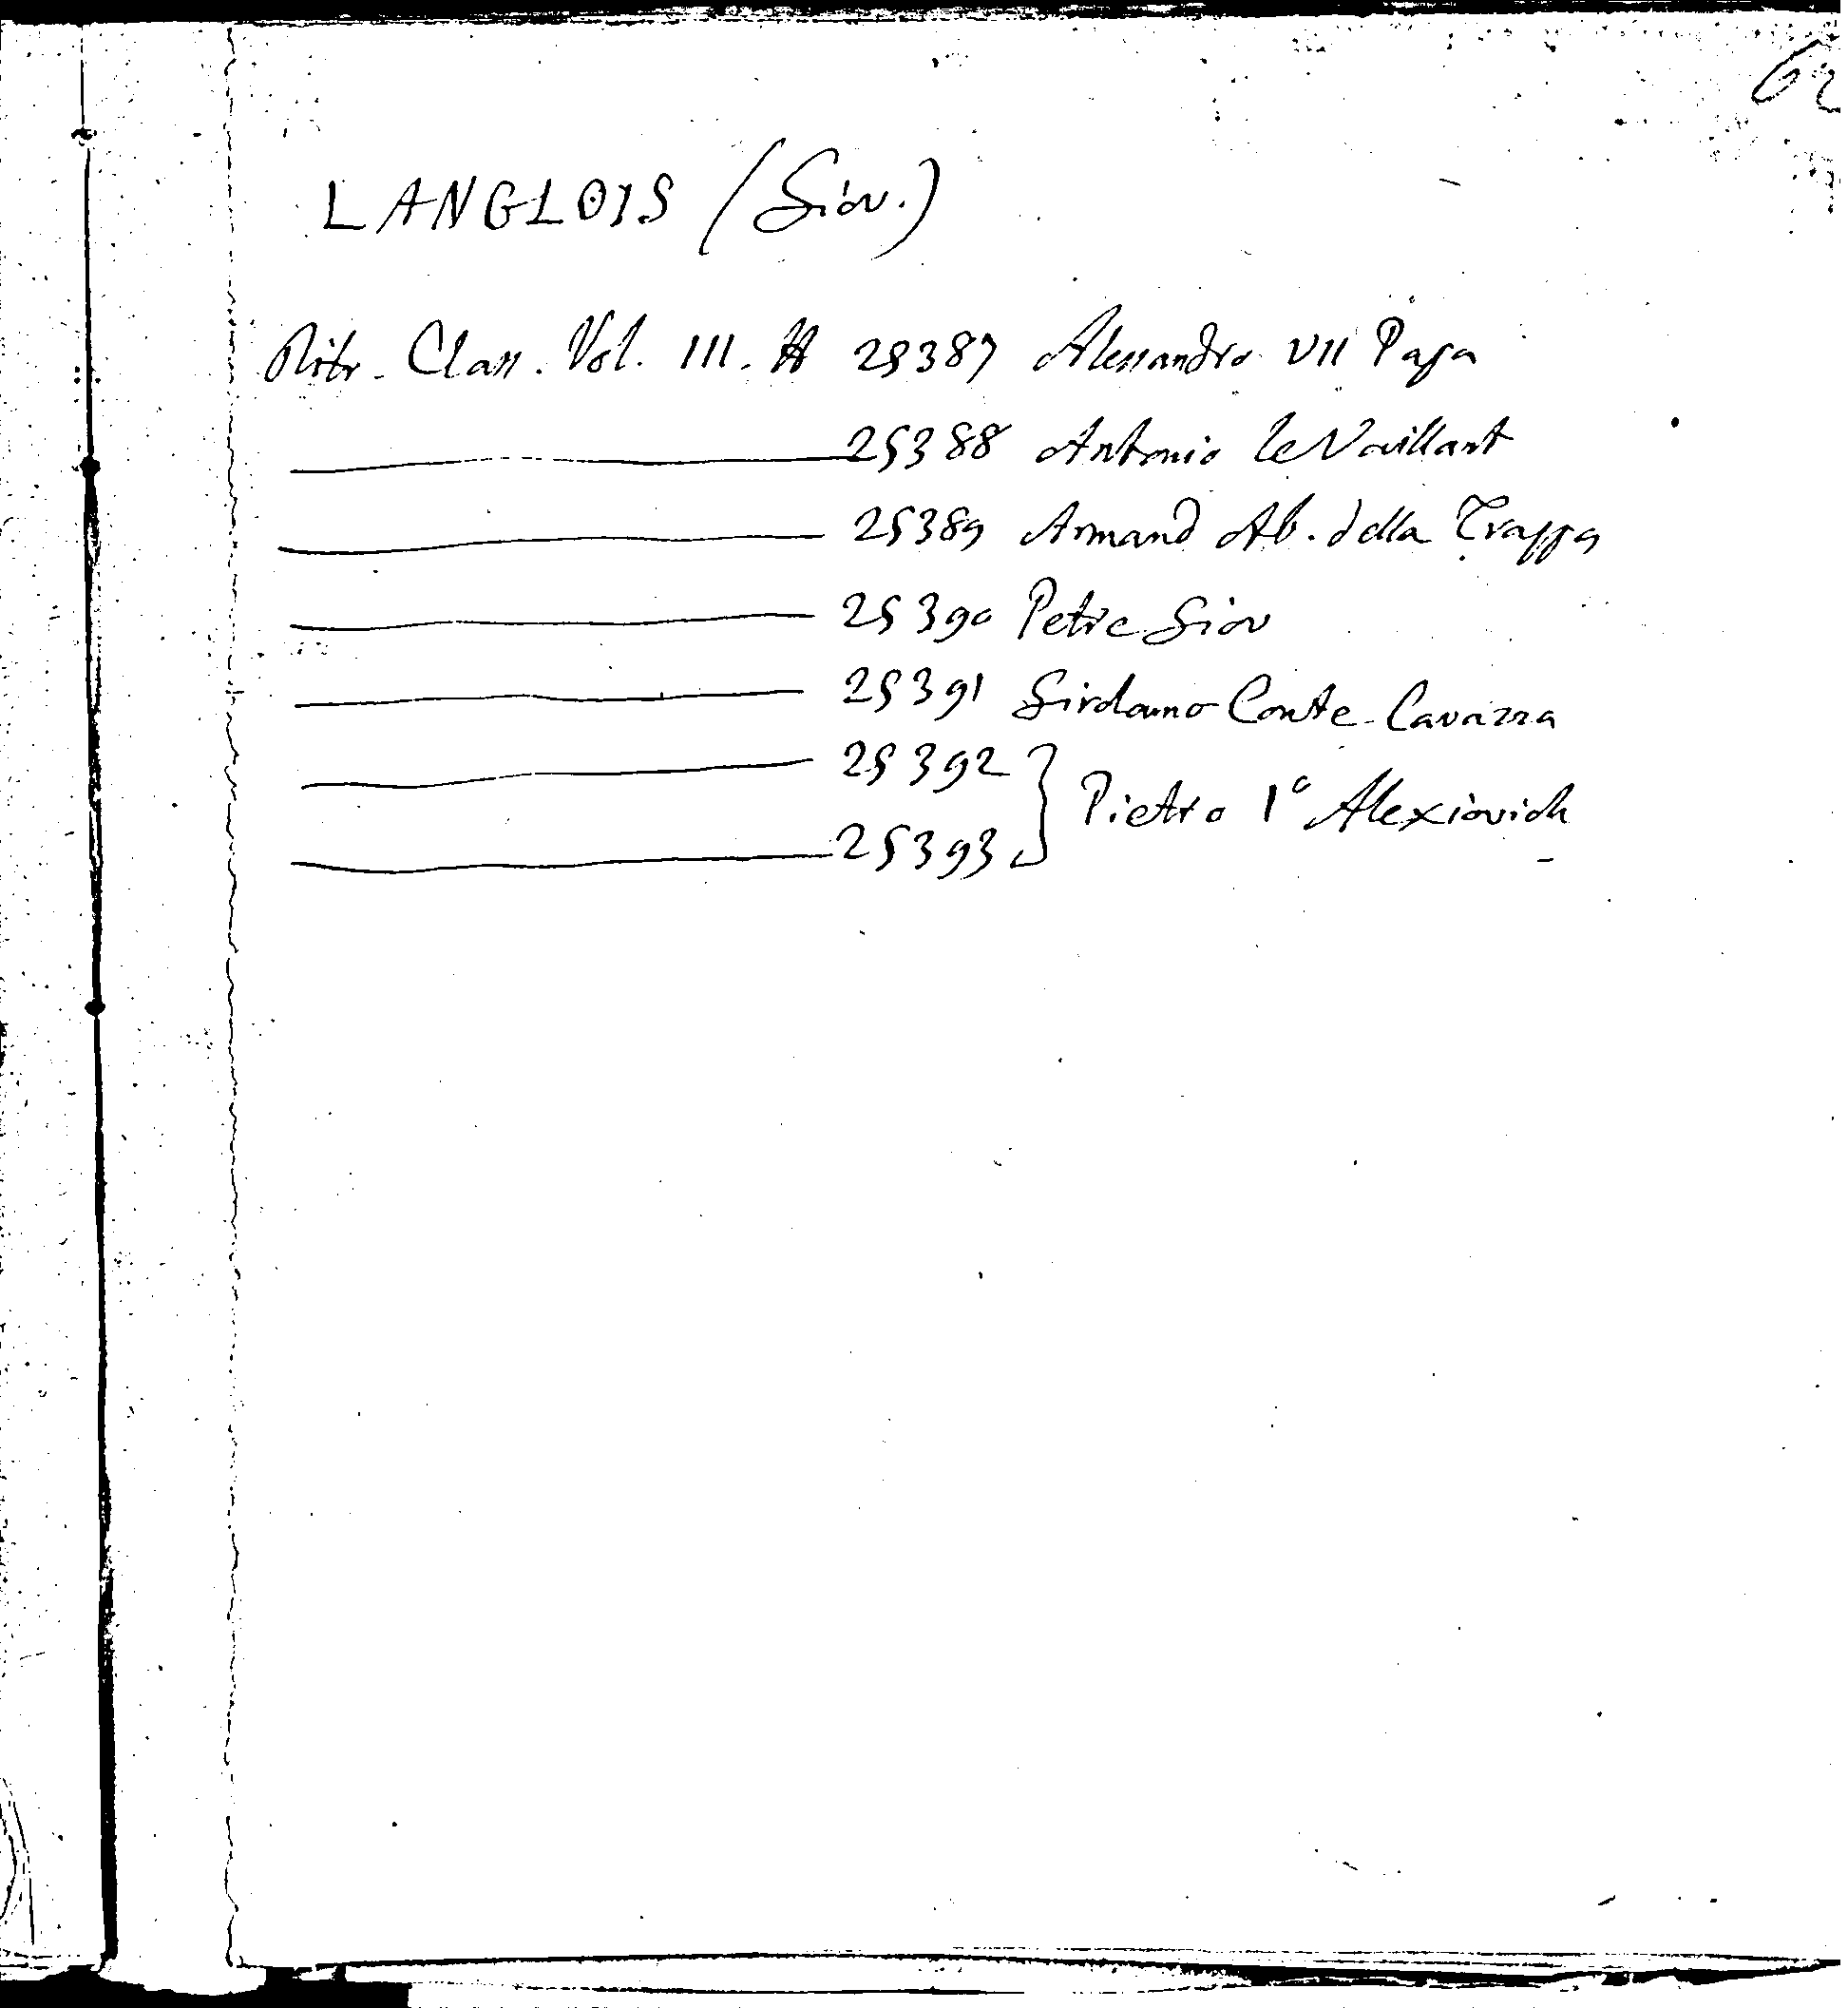 62
LANGLOIS (Giov.)
Ritr. Class. Vol. III. N 25387 Alessandro VII Papa
25388 Antonio le Vaillant
25389 Armand Ab. della Trappa
25390 Petre Giov
25391 Girolamo Conte Cavazza
25392
25393 } Pietro 1° Alexiovich